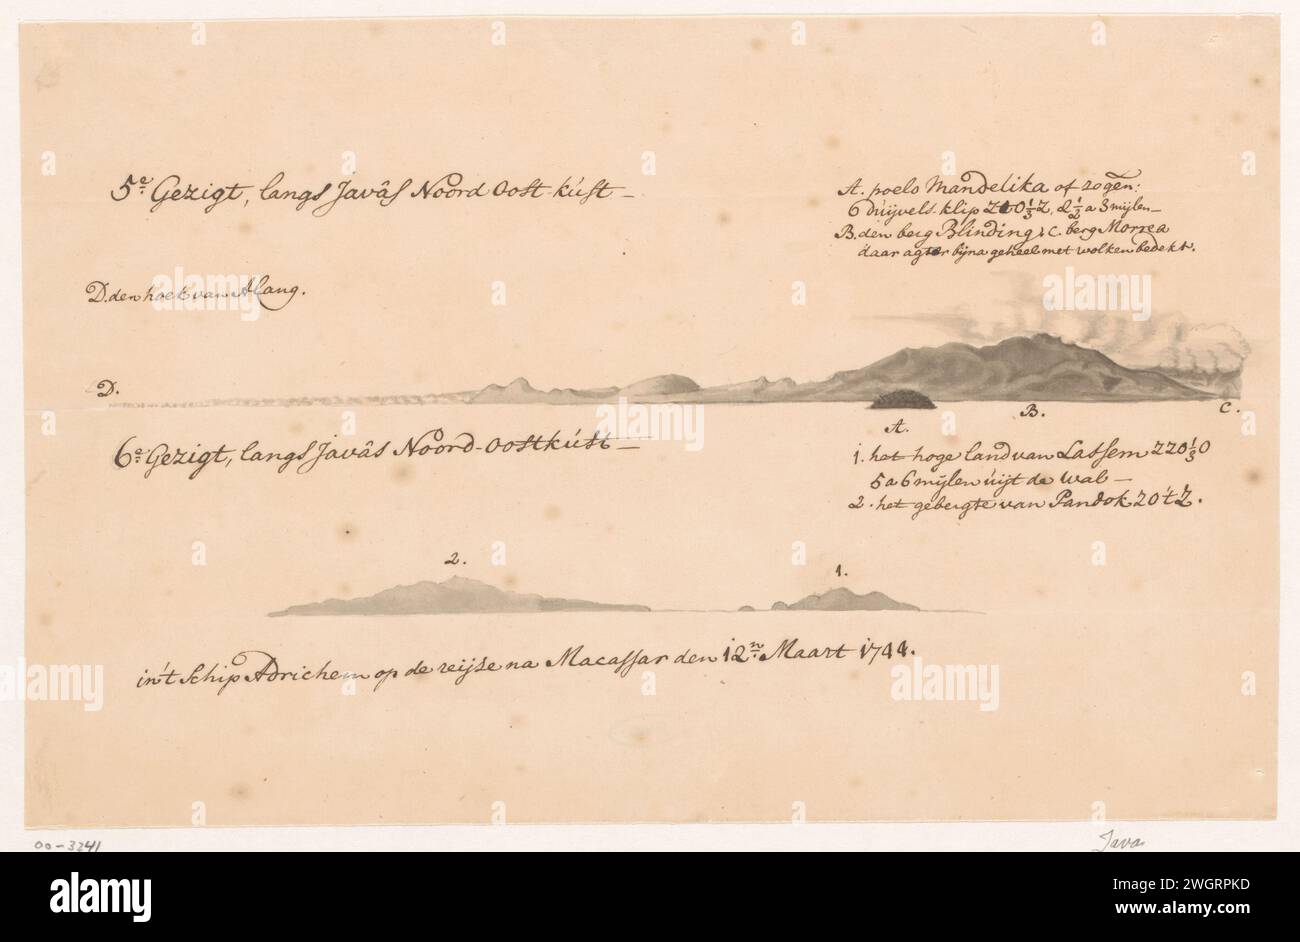 5e. Gezigt, langs Javâs Noord Oost-kúst —
A. poelo Mandelika of zogen:
duijvels klip Z t O ⅓ Z, 2½ a 3 mijlen —
B. den berg Blinding & C. berg Morrea
daar agter bijna geheel met wolken bedekt.
D. den hoek van Alang.
D.
A.
B.
C.
6e. Gezigt, langs Javâs Noord-Oostkúst —
1. het hoge land van Lassem ZZO ⅓ O
5 a 6 mijlen úijt de wal —
2. het gebergte van Pandok ZO t Z.
2.
1.
in't Schip Adrichem op de reijse na Macassar den 12n. Maart 1744.
00-3241
Java
alamy
Image ID: 2WGRPKD
www.alamy.com